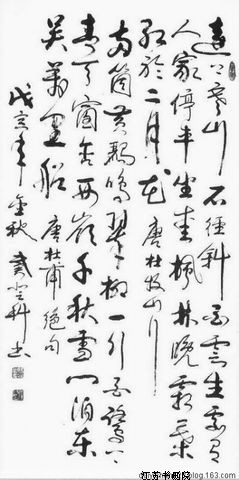 遠上寒山石徑斜白雲生處有
人家停車坐愛楓林晚霜葉
紅於二月花 唐杜牧山行
兩箇黃鸝鳴翠柳一行白鷺上
青天窗含西嶺千秋雪門泊東
吳萬里船 唐杜甫絕句
戊寅年金秋 書
江苏书画院
blog.163.com